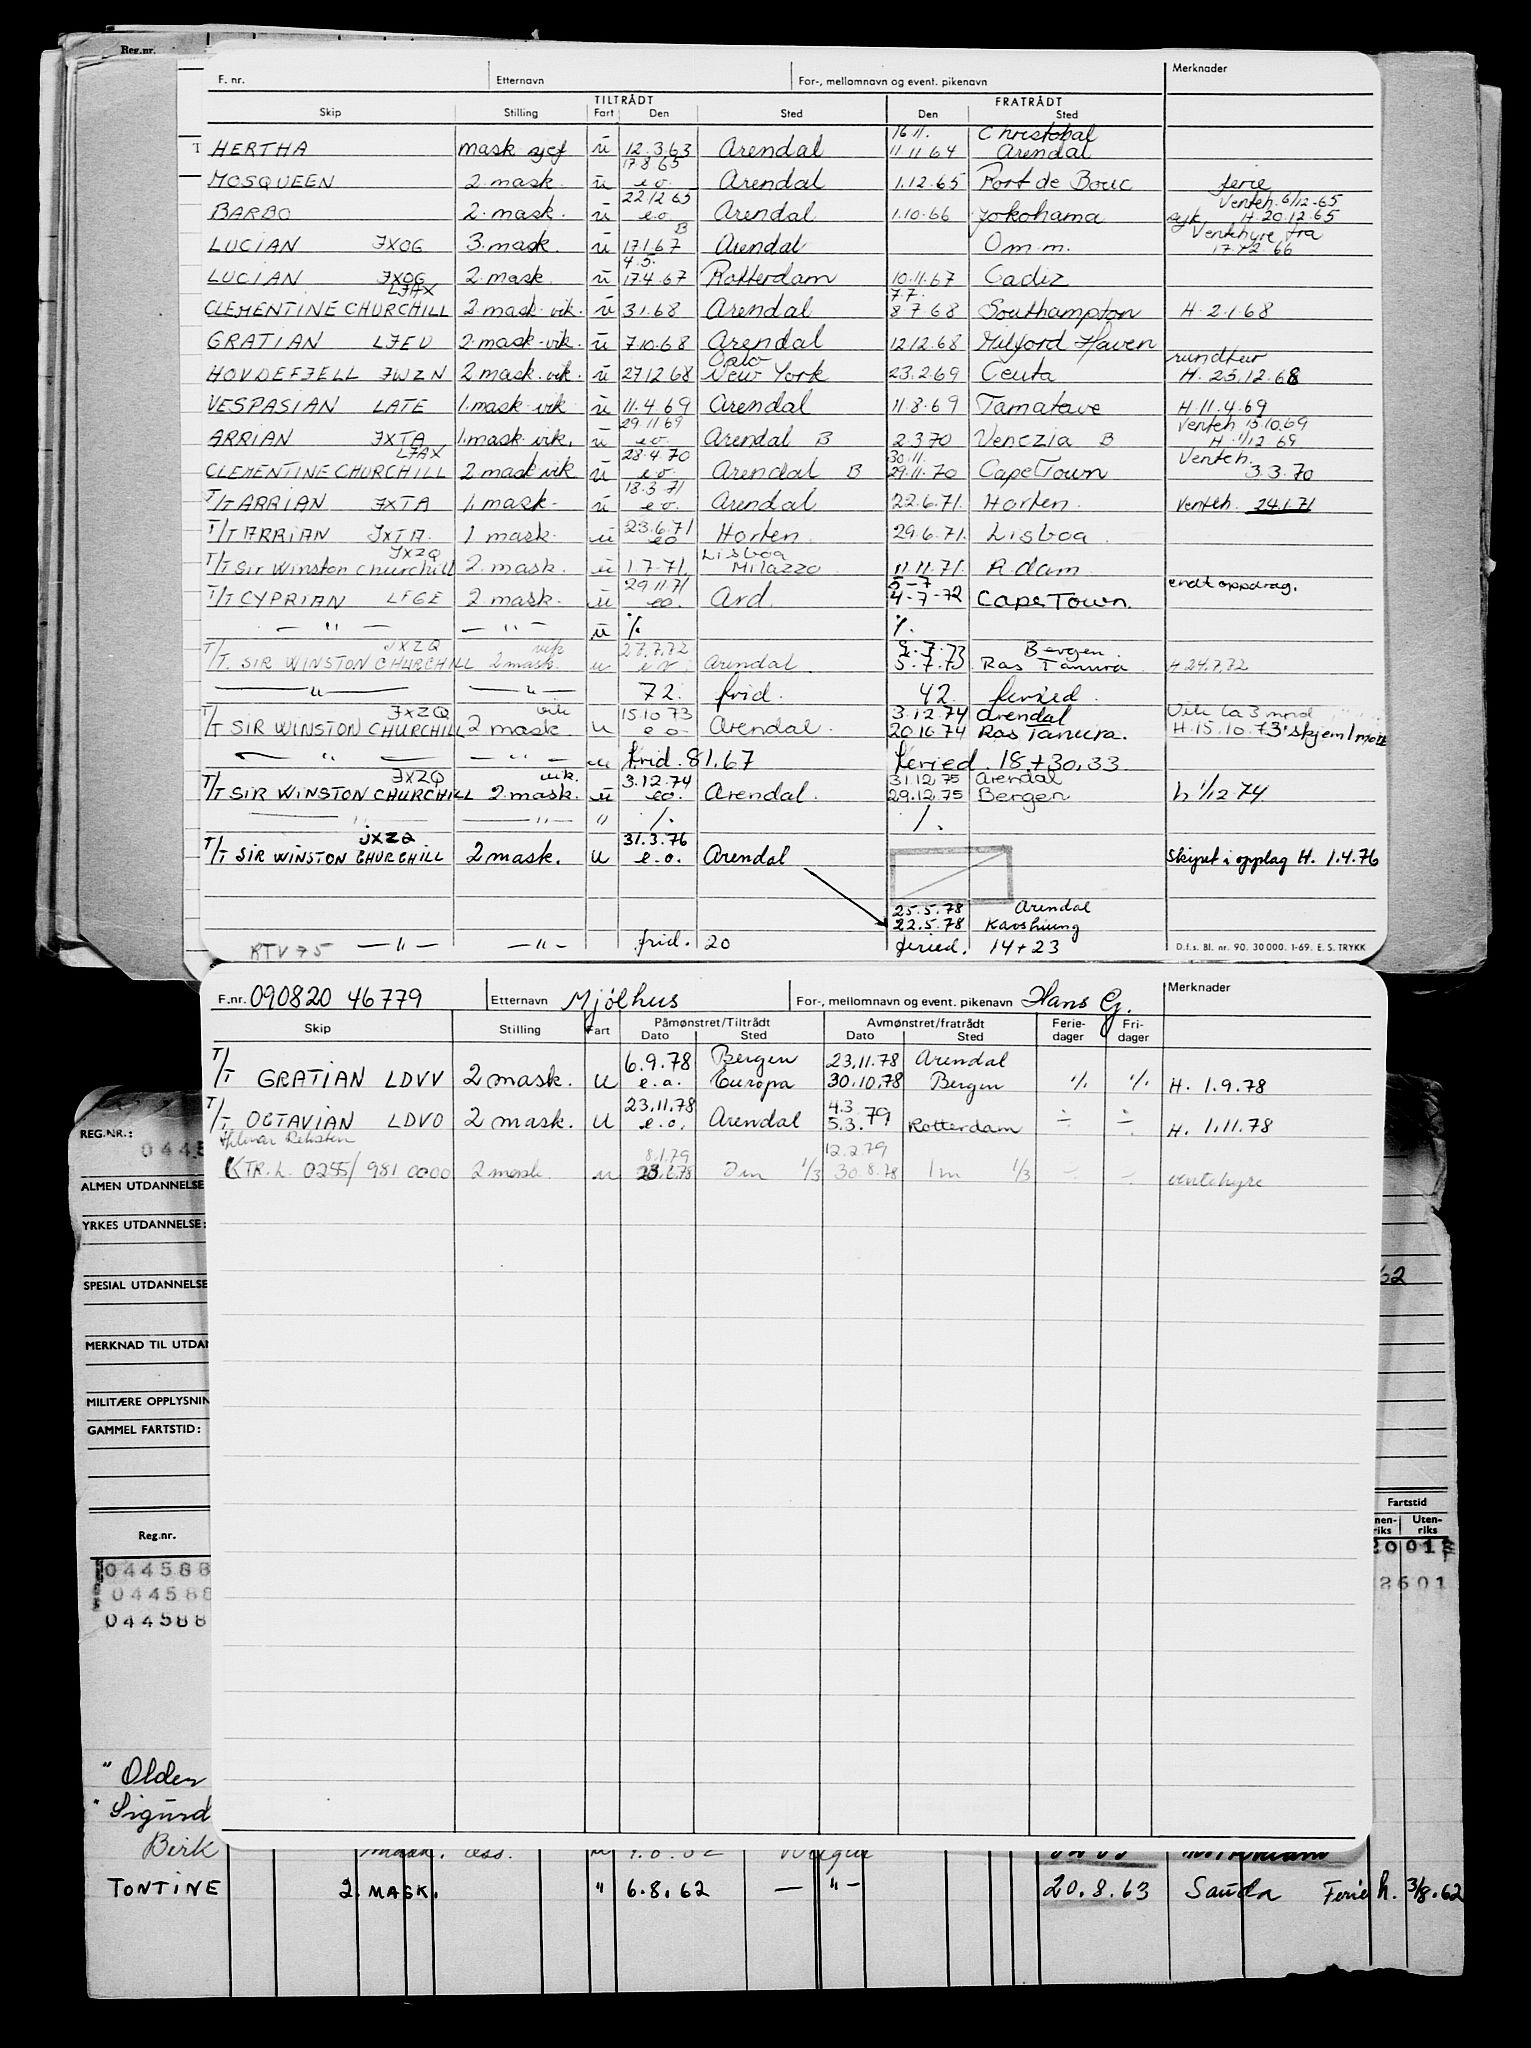 Reg.nr.
F. nr. Etternavn For-, mellomnavn og event. pikenavn Merknader
TILTRÅDT FRATRÅDT
Skip Stilling Fart Den Sted Den Sted
16 11. Christobal
HERTHA mask sjef ü 12.3.63 Arendal 11 11 64 Arendal
17 8 65
MOSQUEEN 2. mask. ü e.o. Arendal 1.12.65 Port de Bouc ferie
22 12 65 Venteh. 6/12-65
BARBO 2. mask. ü e.o Arendal 1.10.66 Yokohama syk. H 20.12.65
B Ventehyre fra
LUCIAN JXOG 3. mask. ü 17 1 67 Arendal Om.m. 17.12.66
4.5.
LUCIAN JXOG 2. mask. ü 17.4.67 Rotterdam 10.11.67 Cadiz
LJAX 7.7.
CLEMENTINE CHURCHILL 2. mask. vik. ü 3.1.68 Arendal 8 7.68 Southampton H. 2.1.68
GRATIAN LJEU 2. mask. vik. ü 7.10.68 Arendal 12 12.68 Milford Haven
Oslo rundtur
HOVDEFJELL JWZN 2. mask. vik. ü 27.12.68 New York 23.2.69 Ceuta H. 23.12.68
VESPASIAN LATE 1. mask. vik ü 11.4.69 Arendal 11.8.69 Tamatave H. 11.4.69
29.11 69 Venteh 15.10.69
ARRIAN JXTA 1. mask. vik. ü e.o. Arendal B 2.3.70 Venezia B H. 1/12 69
LJAX 28.4.70 30.11. Venteh.
CLEMENTINE CHURCHILL 2. mask vik ü e.o. Arendal B 29.11.70 Cape Town 3.3.70
18.3.71
T/T ARRIAN JXTA 1. mask. ü e.o. Arendal 22.6.71. Horten. Venteh. 24.1.71
23.6.71
T/T ARRIAN JXTA. 1 mask. ü eo Horten. 29.6.71. Lisboa.
JXZQ Lisboa
T/T Sir Winston Churchill 2. mask. ü 1.7.71. Milazzo 11.11.71. R.dam.
29 11.71 5-7 endt oppdrag.
T/T CYPRIAN LFGE 2 mask. ü eo. Ard. 4-7-72 Cape Town.
— " — — " — ü ./. ./.
JXZQ vik 27.7.72 Bergen.
T/T. SIR WINSTON CHURCHILL 2 mask. u e.o. Arendal. 5.7.73 Ras Tanura. H 24.7.72
— " — — " — 72. frid. 42. feried.
JXZQ vik 15.10 73 3.12.74 Arendal
T/T SIR WINSTON CHURCHILL 2 mask u e o. Arendal. 20 10 74 Ras Tanura. H. 15.10.73.
— " — — " — u frid. 81,67 feried. 18+30,33
JXZQ vik. 3.12.74 31.12.75 Arendal
T/T SIR WINSTON CHURCHILL 2. mask. ü eo. Arendal. 29.12.75 Bergen h 1/12.74
— " — — " — " ./. ./.
JXZQ 31.3.76
T/T SIR WINSTON CHURCHILL 2 mask. u e.o. Arendal skipet i opplag H. 1.4.76
25.5.78 Arendal
22.5.78 Kaoshiung
RTV 75 — " — — " — frid. 20 feried. 14+23 D.f.s. Bl. nr. 90. 30 000. 1-69. E. S. TRYKK
F.nr. 090820 46779 Etternavn Mjølhus For-, mellomnavn og event. pikenavn Hans G. Merknader
Skip Stilling Fart Påmønstret/Tiltrådt Avmønstret/fratrådt Ferie- Fri-
Dato Sted Dato Sted dager dager
6.9.78 Bergen 23.11.78 Arendal
T/T GRATIAN LDVV 2 mask. u e.a. Europa 30.10.78 Bergen ./. ./. H. 1.9.78
23.11.78 4.3
T/T. OCTAVIAN LDVO 2 mask. u e.o. Arendal 5.3.79 Rotterdam ÷ ÷ H. 1.11.78
Hilmar Reksten 8.1.79 12.2.79
KTR.L. 0255/ 981 0000 2 mask. u 23.6.78 Im 1/3 30.8.78 Im 1/3 ÷ ÷ ventehyre
REG.NR.: 0445
ALMEN UTDANNELSE
YRKES UTDANNELSE:
SPESIAL UTDANNELSE 62
MERKNAD TIL UTDAN
MILITÆRE OPPLYSNIN
GAMMEL FARTSTID:
Fartstid
Reg.nr. nen- Uten-
riks riks
044588 2001
044588 2601
044588
" Olden
" Sigurd
Birk mask. ass.
TONTINE 2. MASK. " 6.8.62 — " — 20.8.63 Sauda Ferie h. 3/8.62